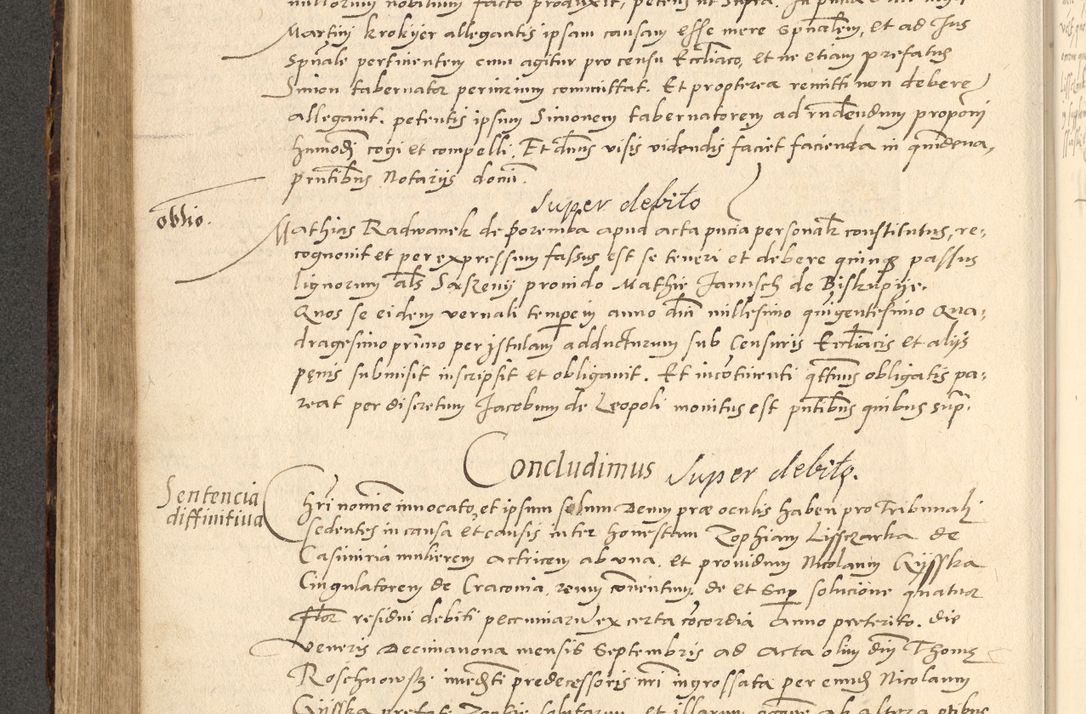 Martini krokyer allegantis ipsam causam esse mere spũalem, et ad Jus
Spũale pertinentem cum agitur pro censu Eccliãco, et ne etiam prefatus
Simon tabernator periurium committat. Et propterea remitti non debere
allegavit. petentis ipsum Simonem tabernatorem ad rñdendum proponi
hmõdi cogi et compelli. Et dñus visis videndis faciet facienda in quindena,
pñtibus Notarijs domi.
Super debito
oblio.
Mathias Radwanek de poremba apud acta pñcia personalr constitutus, re-
cognovit et per expressum fassus est se teneri et debere quinqꝫ passus
lignorum als Sąszenij provido Mathie Janusch de Biskupije.
Quos se eidem vernali tempere anno dñi millesimo quigentesimo Qua-
dragesimo primo per istulam adducturum sub Censuris Eccliãcis et alijs
penis submisit inscripsit et obligavit. Et incõtinenti qttnus obligatis pa-
reat per discretum Jacobum de Leopoli monitus est pñtibus quibus supr.
Concludimus Super debito.
Sentencia
diffinitiua
Chri nomine innocato, et ipsum solum Deum præ oculis haben pro Tribunali
sedentes in causa et causis inter honestam Zophiam Lissczarka de
Casimiria mulierem actricem ab una. et providum Nicolaum Rysska
Cingulatorem de Cracovia, reum cõventum. de et supr solucione quatuor
flor residui debiti pecuniarij ex certa cõcordia Anno preterito. die
veneris Decimanona mensis Septembris ad Acta olim dñi Thome
Roschnowskꝫ immedti predecessoris nri ingrossata per eundem Nicolaum